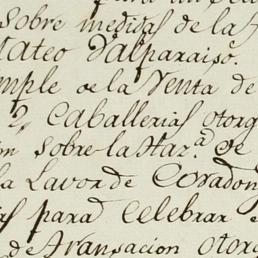 sobre medidas de la
Mateo Valparaiso.
de la Venta de
2, Caballerias otorg
sobre la Haz.ª de
la Lavor de Coradon
para celebrar
de Transacion otorg